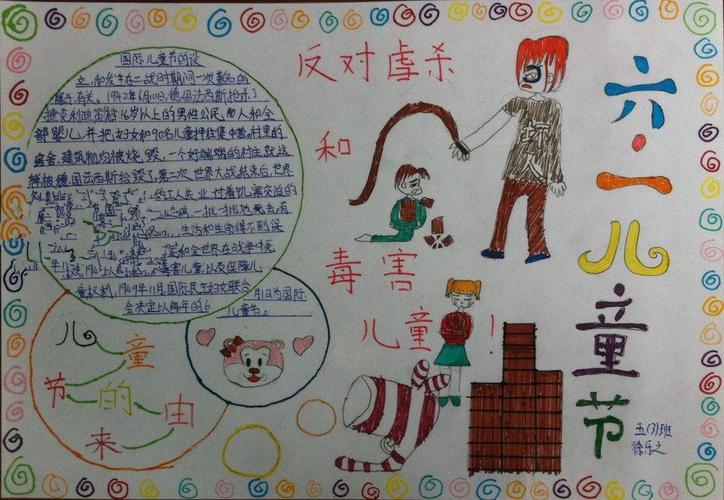 国际儿童节的设
立,和发生在二战时期间一次著名的
屠杀有关。1942年6月10日,德国法西斯枪杀了
捷克利迪策村16岁以上的男性公民,
部婴儿,并把妇女和90名儿童押往集中营。村里的
房舍、建筑物均被烧毁,一个好端端的村庄就这
样被德国法西斯给毁了。第二次世界大战结束后,世界
的工人失业,过着饥寒交迫的
病,一批批地死去;有
生活和生命得不到保
和全世界在战争中死
害儿童,以及保障儿
童权利,1949年11月,国际民主妇女联合
会决定以每年的6
月1日为国际
儿童节。
儿童
节的由
来
反对虐杀
和
毒害
儿童!
坏
人
六·一
儿
童
节
五(3)班
徐乐之